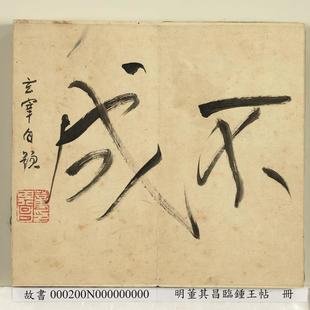 不
成
玄宰自題
故書 000200N000000000 明董其昌臨鍾王帖 冊